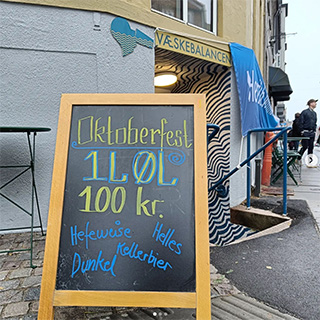 VÆSKEBALANCEN
Oktoberfest
1L ØL
100 kr.
Hefeweise Helles
Kellerbier
Dunkel